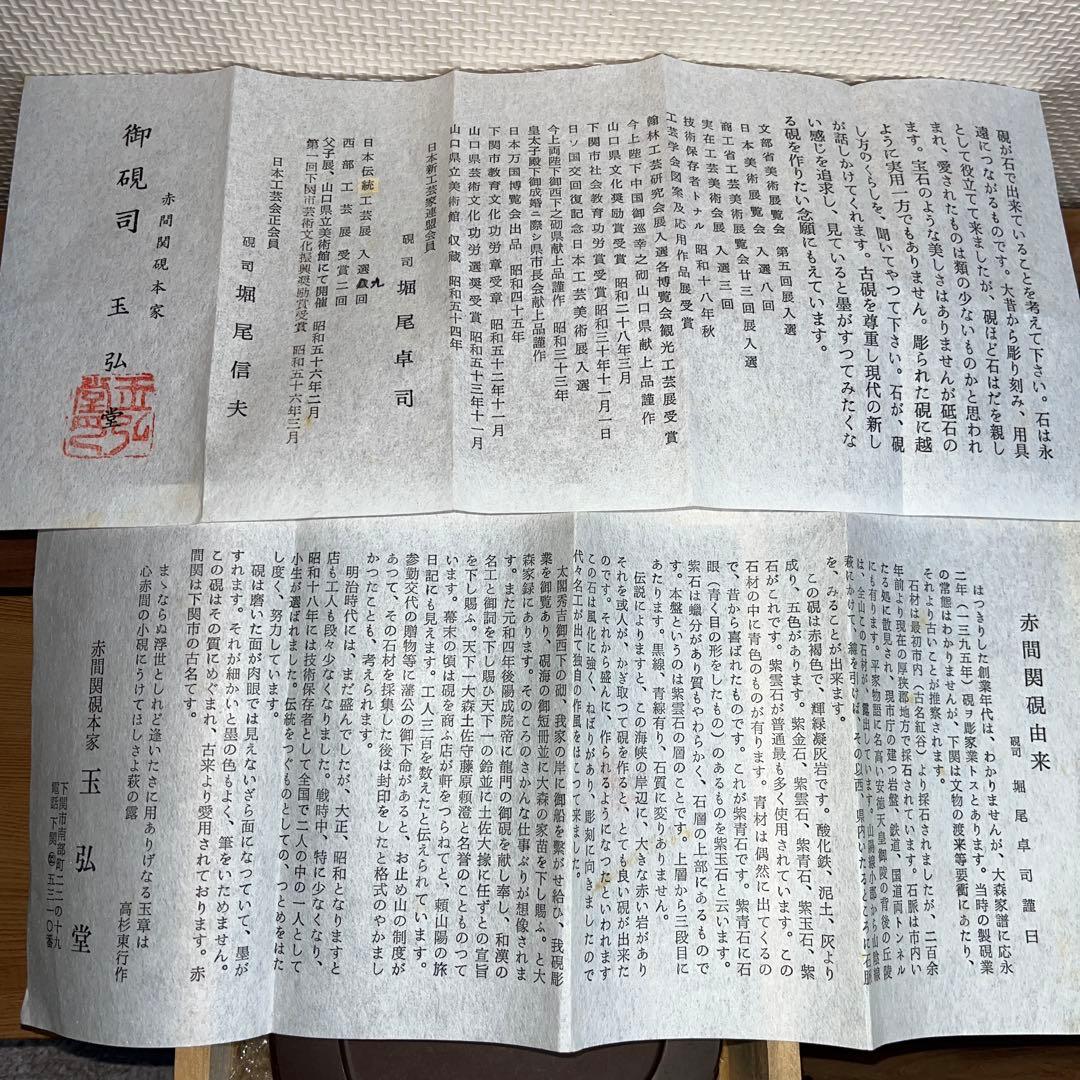 硯が石で出来ていることを考えて下さい。石は永
遠につながるものです。大昔から彫り刻み、用具
として役立てて来ましたが、硯ほど石はだを親し
まれ、愛されたものは類の少ないものかと思われ
ます。宝石のような美しさはありませんが砥石の
ように実用一方でもありません。彫られた硯に越
し方のくらしを、聞いてやって下さい。石が、硯
が話しかけてくれます。古硯を尊重し現代の新し
い感じを追求し、見ていると墨がすってみたくな
る硯を作りたい念願にもえています。
文部省美術展覧会 第五回展入選
日本美術展覧会 入選八回
商工省工芸美術展覧会廿三回展入選
実在工芸美術会展 入選三回
技術保存者トナル 昭和十八年秋
工芸学会図案及応用作品展受賞
翰林工芸研究会展入選各博覧会観光工芸展受賞
今上陛下中国御巡幸之砌山口県献上品謹作
山口県文化奨励賞受賞 昭和二十八年三月
下関市社会教育功労賞受賞昭和三十年十一月一日
日ソ国交回復記念日本工芸美術展入選
今上両陛下御西下之砌県献上品謹作 昭和三十三年
皇太子殿下御成婚ニ際シ県市長会献上品謹作
日本万国博覧会出品 昭和四十五年
下関市教育文化功労章受章 昭和五十二年十一月
山口県芸術文化功労選奨受賞 昭和五十三年十一月
山口県立美術館 収蔵 昭和五十四年
日本新工芸家連盟会員
硯司 堀尾卓司
日本伝統工芸展 入選九回
西部工芸展 受賞二回
父子展、山口県立美術館にて開催 昭和五十六年二月
第一回下関市芸術文化振興奨励賞受賞 昭和五十六年三月
日本工芸会正会員
硯司 堀尾信夫
赤間関硯本家
御硯司 玉弘堂
赤間関硯由来
硯司 堀尾卓司謹日
はつきりした創業年代は、わかりませんが、大森家譜に応永
二年(一三九五年)硯ヲ彫家業トスとあります。当時の製硯業
の常態はわかりませんが、下関は文物の渡来等要衝にあたり、
それより古いことが推察されます。
石材は最初市内(古名紅谷)より採石されましたが、二百余
年前より現在の厚狭郡地方で採石されています。石脈は市内い
たる処に散見され、現市庁の建つ岩盤、鉄道、国道両トンネル
にも有ります。平家物語に名高い安徳天皇御陵の背後の丘陵
は、全山この石材が、露出しています。山陽線小郡から山陰線
を、みることが出来ます。
この硯は赤褐色で、輝緑凝灰岩です。酸化鉄、泥土、灰より
成り、五色があります。紫金石、紫雲石、紫青石、紫玉石、紫
石がこれです。紫雲石が普通最も多く使用されています。この
石材の中に青色のものが有ります。青材は偶然に出てくるの
で、昔から喜ばれたものです。これが紫青石です。紫青石に石
眼(青く目の形をしたもの)のあるものを紫玉石と云います。
紫石は蝋分があり質もやわらかく、石層の上部にあるもので
す。本盤というのは紫雲石の層のことです。上層から三段目に
あたります。黒線、青線有り、石質に変りありません。
伝説によりますと、この海峡の岸辺に、大きな赤い岩があり
それを或人が、かぎ取つて硯を作ると、とても良い硯が出来た
のです。それから盛んに、作られるようになつたといわれます
この石は風化に強く、ねばりがあり、彫刻に向きましたので
代々名工が出て独自の作風をはこって来ました。
太閤秀吉御西下の砌、我家の岸に御船を繋がせ給ひ、我硯彫
業を御覧あり、硯海の御短冊並に大森の家苗を下し賜ふ。と大
森家録にあります。そのころのさかんな仕事ぶりが想像されま
す。また元和四年後陽成院帝に龍門の御硯を献し奉し、和漢の
名工と御詞を下し賜ひ天下一の鈴並に土佐大掾に任ずとの宣旨
を下し賜ふ。天下一大森土佐守藤原頼澄と名誉のこともつて
います。幕末の頃は硯を商ふ店が軒をつらねてと、頼山陽の旅
日記にも見えます。工人三百を数えたと伝えられています。
参勤交代の贈物等に藩公の御下命があると、お止め山の制度が
あつて、その石材を採集した後は封印をしたと格式のやかまし
かつたことも、考えられます。
明治時代には、まだ盛んでしたが、大正、昭和となりますと
店も工人も段々少なくなりました。戦時中、特に少なくなり、
昭和十八年には技術保存者として全国で二人の中の一人として
小生が選ばれました。伝統をつぐものとしての、つとめをはた
し度く、努力しています。
硯は磨いた面が肉眼では見えないぎら面になつていて、墨が
すれます。それが細かいと墨の色もよく、筆をいためません。
この硯はその質にめぐまれ、古来より愛用されております。赤
間関は下関市の古名です。
まゝならぬ浮世としれど逢いたさに用ありげなる玉章は
心赤間の小硯にうけてほしさよ萩の露
高杉東行作
赤間関硯本家 玉弘堂
下関市南部町二二の十九
電話下関 五三一〇番